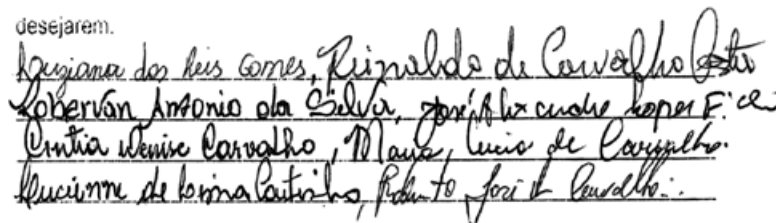 desejarem.
Luziana dos Reis Gomes, Reinaldo de Carvalho
Robervan Antonio da Silva, José Alexandre Lopes F.
Cintia Denise Carvalho, Maria Lucia de Carvalho.
Lucienne de Coutinho, Roberto José de Carvalho.